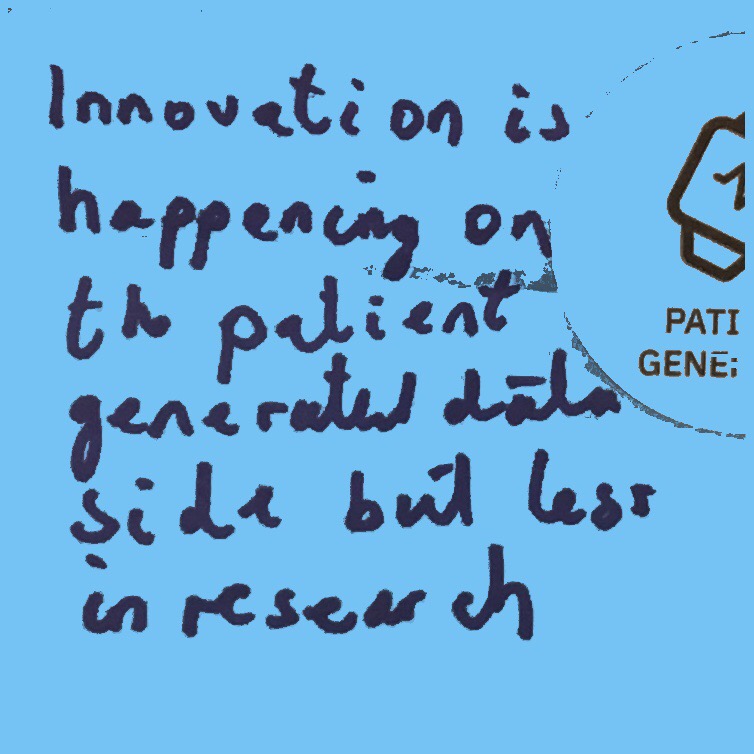 Innovation is
happening on
the patient
generated data
side but less
in research
PATI
GENE